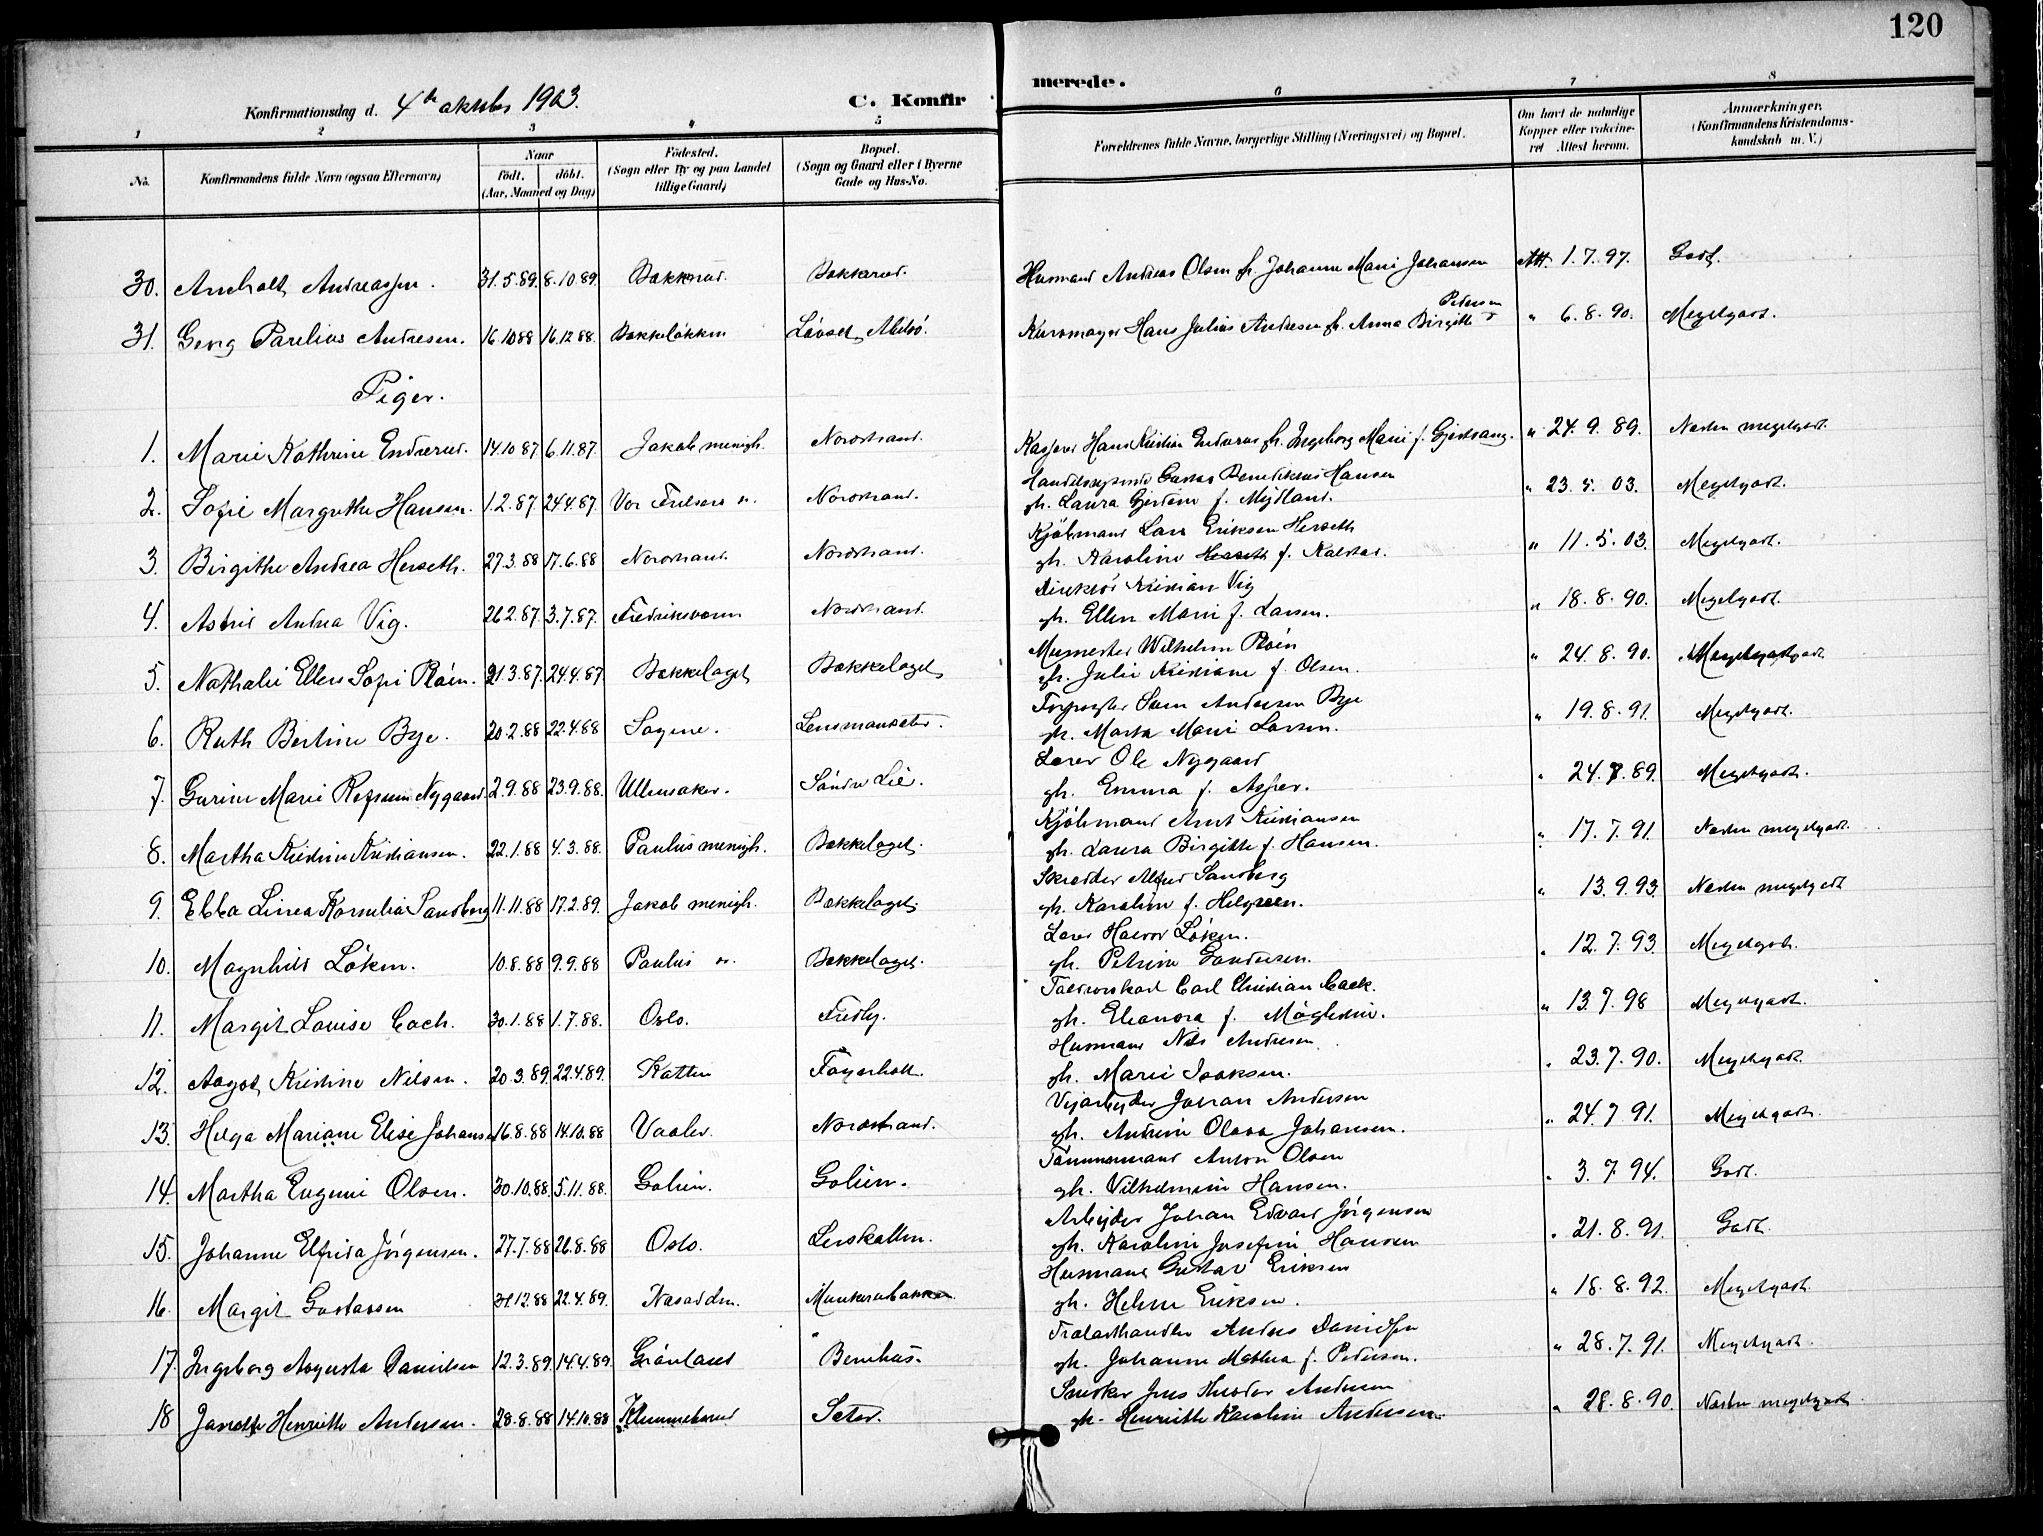 120
Konfirmationsdag d. 4de oktober 1903.
C. Konfirmerede.
1 2 3 4 5 6 7 8
No.
Konfirmandens fulde Navn (ogsaa Efternavn)
Naar
født. døbt.
(Aar, Maaned og Dag)
Fødested.
(Sogn eller By og paa Landet tillige Gaard)
Bopæl.
(Sogn og Gaard eller i Byerne Gade og Hus-No.
Forældrenes fulde Navne, borgerlige Stilling (Næringsvei) og Bopæl.
Om havt de naturlige Kopper eller vakcineret Attest herom.
Anmærkninger.
(Konfirmandens Kristendomskundskab m. V.)
30. Arnholt Andreassen. 31.5.89. 8.10.89. Bakkerud. Bakkerud. Husmand Andreas Olsen h. Johanne Marie Johansen Att. 1.7.97. Godt.
31. Georg Parelius Andresen. 16.10.88 16.12.88. Bakkeløkken Løvset, Abilsø. Hans Julius Andresen h. Anna Birgitte Petersen " 6.8.90. Megetgodt.
Piger.
1. Marie Kathrine Enderud. 14.10.87. 6.11.87. Jakob menigh. Nordstrand. Kasserer Hans Kristian Enderud h. Ingeborg Marie f. Gjertsang. " 24.9.89. Næsten megetgodt.
2. Sofie Margrethe Hansen. 1.2.87. 24.4.87. Vor Frelsers m. Nordstrand. Gustav Benediktus Hansen
gh. Laura f. Mydland. " 23.5.03. Megetgodt.
3. Birgithe Andrea Herseth. 27.3.88 17.6.88 Nordstrand. Nordstrand. Kjøbmand Lars Eriksen Herseth
gh. Karoline Herseth f. Kalstad. " 11.5.03. Megetgodt.
4. Astrid Andrea Vig. 26.2.87. 3.7.87. Fredriksværn Nordstrand. Direktør Kristian Vig
gh. Ellen Marie f. Larsen. " 18.8.90. Megetgodt.
5. Nathalie Ellen Sofie Pløen. 21.3.87. 24.4.87. Bækkelaget Bækkelaget Murmester Wilhelm Pløen
gh. Julie Kristiane f. Olsen. " 24.8.90. Megetgodt.
6. Ruth Bertine Bye. 20.2.88 22.4.88 Sagene. Lensmansæter. Andersen Bye
gh. Marta Marie Larsen. " 19.8.91. Megetgodt.
7. Gurine Marie Refsum Nygaard. 2.9.88 23.9.88. Ullensaker. Søndre Lie. Lærer Ole Nygaard
gh. Emma f. Asper. " 24.7.89. Megetgodt.
8. Martha Kristine Kristiansen. 22.1.88 4.3.88. Paulus menigh. Bækkelaget. Kjøbmand Arnt Kristiansen
gh. Laura Birgitte f. Hansen. " 17.7.91. Næsten megetgodt.
9. Ebba Linea Kornelia Sandberg 11.11.88 17.2.89. Jakob menigh. Bækkelaget. Skrædder Alfred Sandberg
gh. Karoline f. Helgreen. " 13.9.93. Næsten megetgodt
10. Magnhild Løken. 10.8.88 9.9.88 Paulus m. Bækkelaget. Lærer Halvor Løken.
gh. Petrine Gundersen. " 12.7.93. Megetgodt.
11. Margit Louise Cock. 30.1.88 1.7.88. Oslo. Fredly. Carl Christian Cock.
gh. Eleonora f. " 13.7.98 Megetgodt.
12. Aagot Kristine Nilsen. 20.3.89 22.4.89. Katten Fagerholt. Husmand Nils Andresen.
gh. Marie Isaksen. " 23.7.90. Megetgodt.
13. Helga Mariane Elise Johansen 16.8.88 14.10.88 Vaaler. Nordstrand. Vejarbejder Johan Andersen
gh. Andrine Olava Johansen. " 24.7.91. Megetgodt.
14. Martha Eugenie Olsen. 30.10.88. 5.11.88. Golien. Golien. Tømmermand Anton Olsen
gh. Vilhelmine Hansen. " 3.7.94. Godt.
15. Johanne Elfrida Jørgensen. 27.7.88 26.8.88 Oslo. Lerskallen. Arbejder Johan Edvard Jørgensen
gh. Karoline Josefine Hansen " 21.8.91. Godt.
16. Margit Gustavsen 31.12.88 22.4.89. Munkerudbakken Husmand Gustav Eriksen
gh. Helene Eriksen. " 18.8.92. Megetgodt.
17. Ingeborg Augusta Danielsen 12.3.89. 14.4.89. Grønland Bernhus. Trælasthandler Anders Danielsen
gh. Johanne Mathea f. Pedersen. " 28.7.91. Megetgodt.
18 Janette Henriette Andersen. 28.8.88 14.10.88 Klemmetsrud Seter. Snedker Jens Theodor Andersen
gh. Henriette Karoline Andersen. " 28.8.90. Næsten megetgodt